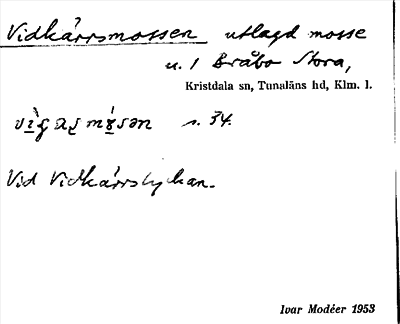 Vidkärrsmossen utlagd mosse
u. 1 Bråbo Stora,
Kristdala sn, Tunaläns hd, Klm. l.
s. 34.
Vid Vidkärrslyckan.
Ivar Modéer 1953